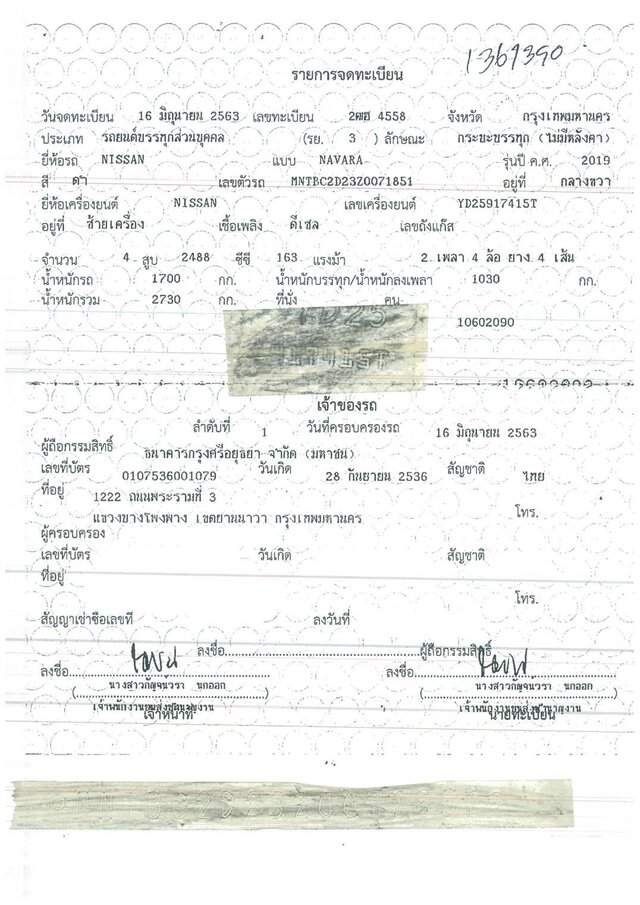 1-361390
รายการจดทะเบียน
วันจดทะเบียน 16 มิถุนายน 2563 เลขทะเบียน 4558 จังหวัด กรุงเทพมหานคร
ประเภท รถยนต์บรรทุกส่วนบุคคล (รย. 3 ) ลักษณะ กระบะบรรทุก (ไม่มีหลังคา)
ยี่ห้อรถ NISSAN แบบ NAVARA รุ่นปี ค.ศ. 2019
สี ดำ เลขตัวรถ MNTBC2D23Z0071851 อยู่ที่ กลางขวา
ยี่ห้อเครื่องยนต์ NISSAN เลขเครื่องยนต์ YD25917415T
อยู่ที่ ซ้ายเครื่อง เชื้อเพลิง ดีเซล เลขถังแก๊ส
จำนวน 4 สูบ 2488 ซีซี 163 แรงม้า 2 เพลา 4 ล้อ ยาง 4 เส้น
น้ำหนักรถ 1700 กก. น้ำหนักบรรทุก/น้ำหนักลงเพลา 1030 กก.
น้ำหนักรวม 2730 กก. ที่นั่ง คน
10602090
เจ้าของรถ
ลำดับที่ 1 วันที่ครอบครองรถ 16 มิถุนายน 2563
ผู้ถือกรรมสิทธิ์ ธนาคารกรุงศรีอยุธยา จำกัด (มหาชน)
เลขที่บัตร 0107536001079 วันเกิด 28 กันยายน 2536 สัญชาติ ไทย
ที่อยู่ 1222 ถนนพระรามที่ 3
แขวงบางโพงพาง เขตยานนาวา กรุงเทพมหานคร โทร.
ผู้ครอบครอง
เลขที่บัตร วันเกิด สัญชาติ
ที่อยู่
โทร.
สัญญาเช่าซื้อเลขที่ ลงวันที่
ลงชื่อ ผู้ถือกรรมสิทธิ์
ลงชื่อ ลงชื่อ
(นางสาวกัญจน์วรา นกออก) (นางสาวกัญจน์วรา นกออก)
เจ้าพนักงานขนส่งชำนาญงาน เจ้าพนักงานขนส่งชำนาญงาน
เจ้าหน้าที่ นายทะเบียน